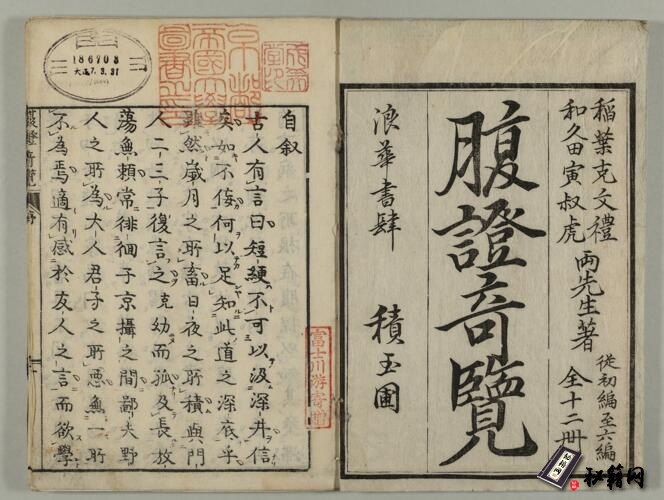 稻葉克文禮
和久田寅叔虎
兩先生著
從初編至六編
全十二冊
腹證奇覽
浪華書肆 積玉圃
自叙
古人有言曰短綆不可以汲深井信
矣如不佞何以足知此道之深底乎
雖然歲月之所畜日夜之所積與門
人二三子復言之克幼而孤及長放
蕩無賴常徘徊于京攝之間鄙夫野
人之所為大人君子之所惡無一所
不為焉適有感於友人之言而欲學
腹證奇覽
京都
帝國大學
圖書之印
富士川游寄贈
186708
大正7.3.31
秘籍网